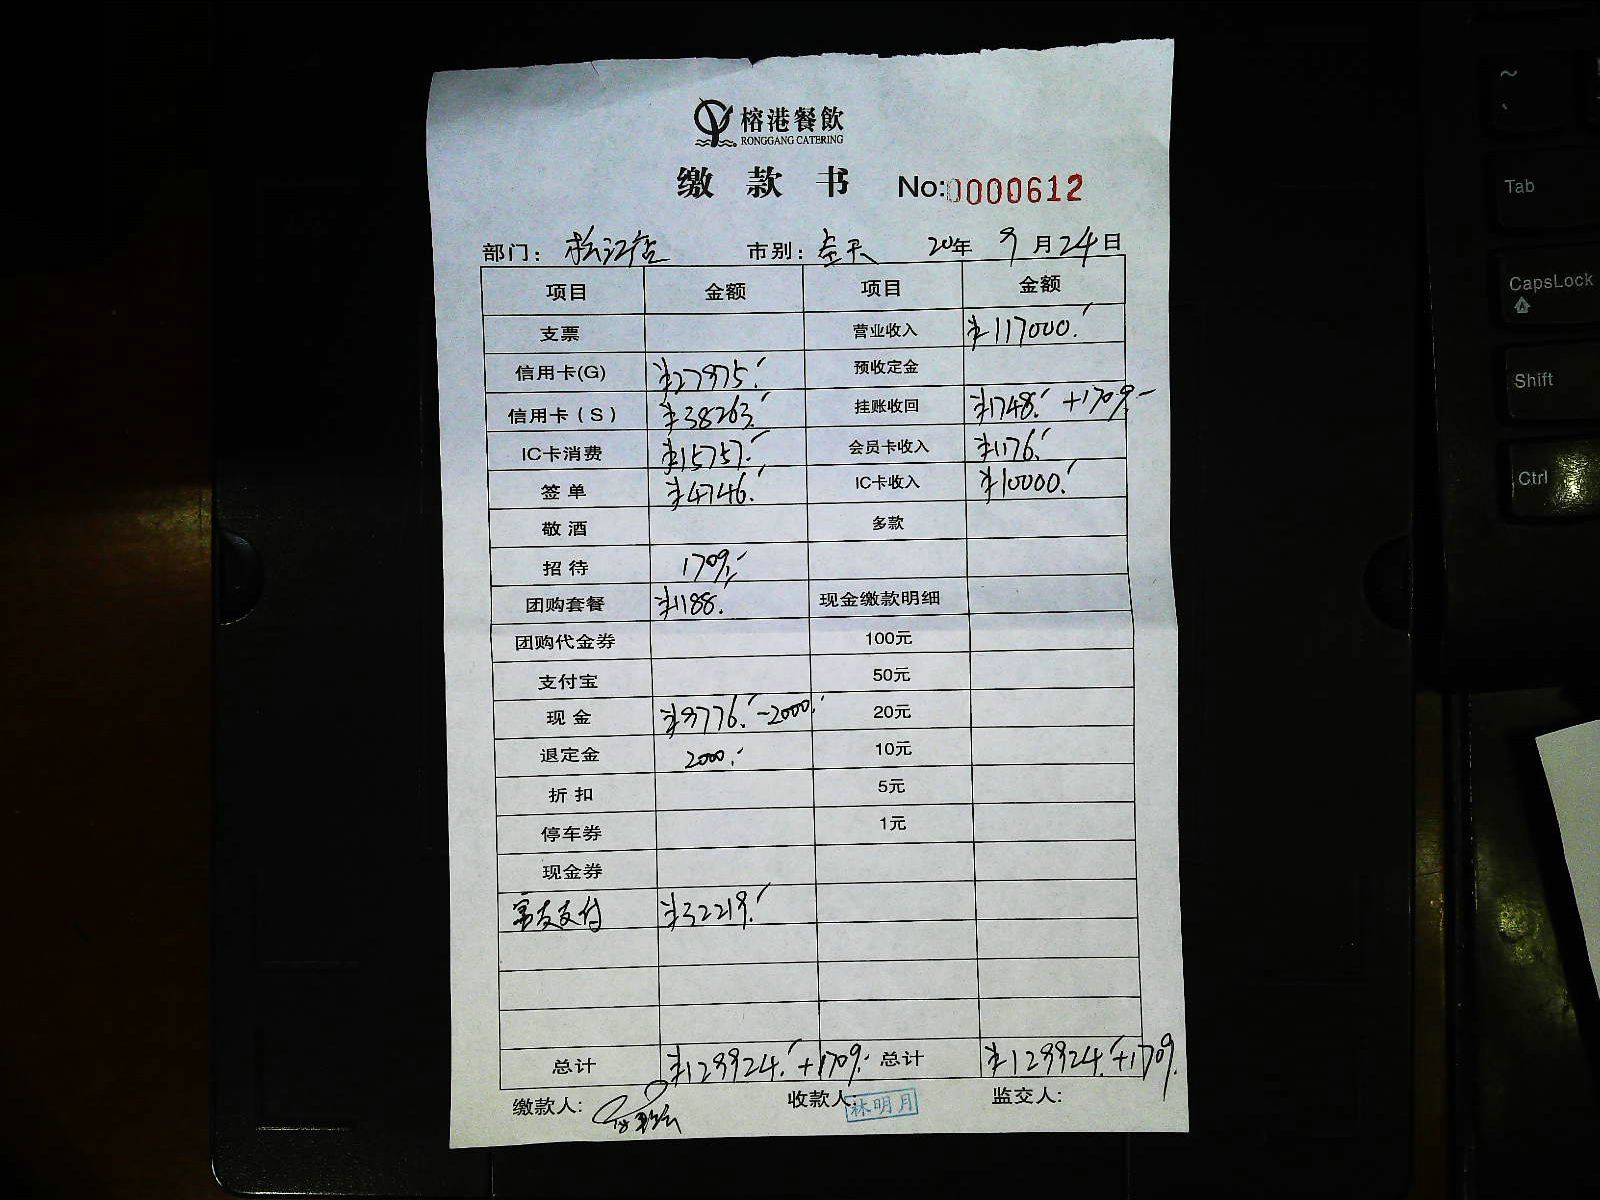 榕港餐飲
RONGGANG CATERING
缴款书 No:0000612
部门：松江店 市别：全天 20年 9月24日
项目 金额 项目 金额
支票 营业收入 ¥117000.-
信用卡(G) ¥27975.- 预收定金
信用卡（S） ¥38263.- 挂账收回 ¥1748.- +1709.-
IC卡消费 ¥15757.- 会员卡收入 ¥1176.-
签单 ¥4746.- IC卡收入 ¥10000.-
敬酒 多款
招待 1709.-
团购套餐 ¥1188.- 现金缴款明细
团购代金券 100元
支付宝 50元
现金 ¥9776.- -2000.- 20元
退定金 2000.- 10元
折扣 5元
停车券 1元
现金券
富友支付 ¥32219.-
总计 ¥129924.- +1709.- 总计 ¥129924.- +1709.
缴款人: 收款人: 林明月 监交人:
~
、
Tab
CapsLock
Shift
Ctrl